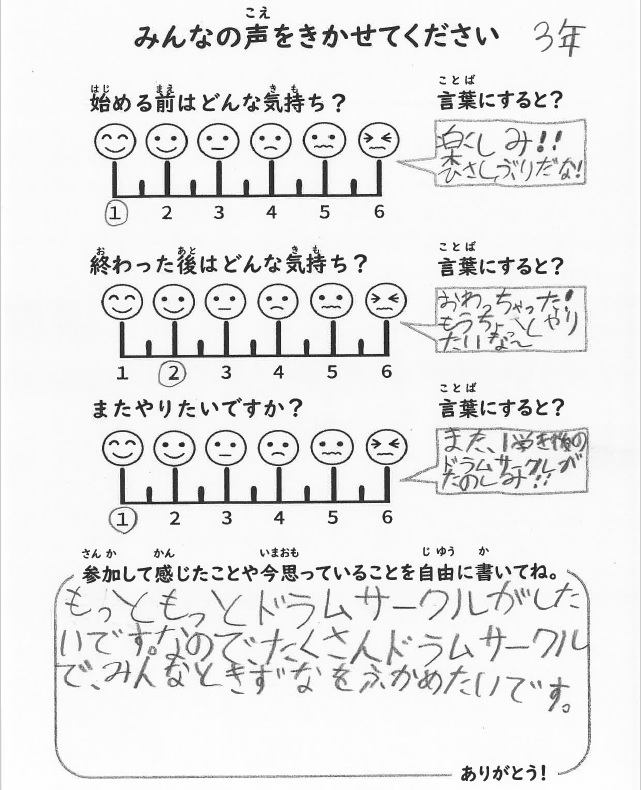 みんなの声をきかせてください 3年
こえ
始める前はどんな気持ち？
はじ まえ き も
言葉にすると？
ことば
楽しみ!!
ひさしぶりだな!
1 2 3 4 5 6
終わった後はどんな気持ち？
お あと き も
言葉にすると？
ことば
おわっちゃった!
もうちょっとやり
たいな〜
1 2 3 4 5 6
またやりたいですか？
言葉にすると？
ことば
また、1学き後の
ドラムサークルが
たのしみ!!
1 2 3 4 5 6
参加して感じたことや今思っていることを自由に書いてね。
さんか かん いまおも じゆう か
もっともっとドラムサークルがした
いです。なので、たくさんドラムサークル
で、みんなときずなをふかめたいです。
ありがとう！